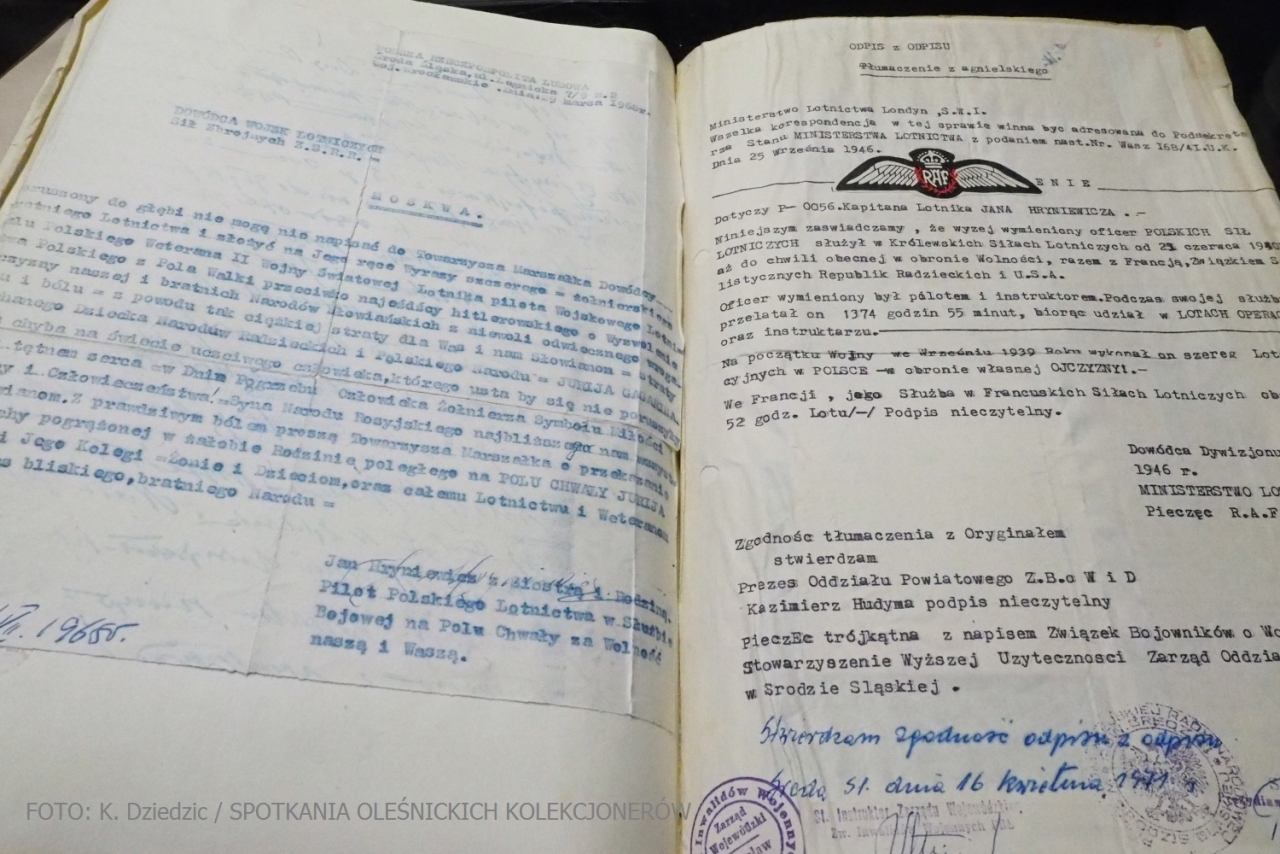 POLSKA RZECZPOSPOLITA LUDOWA
Środa Śląska, ul. Legnicka 7/9 m.2
Woj. Wrocławskie .dnia.29 marca 1968r.
DOWÓDCA WOJSK LOTNICZYCH
Sił Zbrojnych Z.S.R.R. -
MOSKWA.
oruszony do głębi nie mogę nie napisać do Towarzysza Marszałka Dowódcy
ratniego Lotnictwa i złożyć na Jego ręce Wyrazy szczerego = żołnierskiego
Polskiego Weterana II Wojny Światowej Lotnika pilota Wojskowego
Polskiego z Pola Walki przeciwko najeźdźcy hitlerowskiego o Wyzwolenie
naszej i bratnich Narodów Słowiańskich z niewoli odwiecznego wroga.
u i bólu = z powodu tak ciężkiej straty dla Was i nam Słowianom = straty
chanego Dziecka Narodów Radzieckich i Polskiego Narodu = JURIJA GAGARINA.
chyba na świecie uczciwego człowieka,którego usta by się nie poruszyły
tętnem serca =w Dniu Pogrzebu Człowieka Żołnierza Symbolu Miłości
y i Człowieczeństwa!=Syna Narodu Rosyjskiego najbliższego nam
wianom.Z prawdziwym bólem proszę Towarzysza Marszałka o przekazanie
pogrążonej w żałobie Rodzinie poległego na POLU CHWAŁY JURIJA
i Jego Kolegi =Żonie i Dzieciom,oraz całemu Lotnictwu i Weteranom
as bliskiego,bratniego Narodu =
Jan Hryniewicz z Siostrą i Rodziną.
Pilot Polskiego Lotnictwa w Służbie
Bojowej na Polu Chwały za Wolność
naszą i Waszą.
1968r.
ODPIS z ODPISU
Tłumaczenie z agnielskiego
Ministerstwo Lotnictwa Londyn ,S.W.I.
Wszelka korespondencja w tej sprawie winna byc adresowana do Podsekreta
rza Stanu MINISTERSTWA LOTNICTWA z podaniem nast.Nr. Wasz 168/41.U.K.
Dnia 25 Września 1946.
RAF
ENIE
Dotyczy P- 0056.Kapitana Lotnika JANA HRYNIEWICZA . -
Niniejszym zaswiadczamy , że wyzej wymieniony oficer POLSKICH SIŁ
LOTNICZYCH służył w Królewskich Siłach Lotniczych od 21 czerwca 1940
aż do chwili obecnej w obronie Wolności, razem z Francją,Związkiem S
listycznych Republik Radzieckich i U.S.A.
Oficer wymieniony był pilotem i instruktorem.Podczas swojej służb
przelatał on 1374 godzin 55 minut, biorąc udział w LOTACH OPERAC
oraz instruktarzu.
Na początku Wojny we Wrześniu 1939 Roku wykonał on szereg Lot
cyjnych w POLSCE -w obronie własnej OJCZYZNY!.-
We Francji , jego Służba w Francuskich Siłach Lotniczych ob
52 godz. Lotu/-/ Podpis nieczytelny.
Dowódca Dywizjonu
1946 r.
MINISTERSTWO LOT
Pieczęc R.A.F
Zgodność tłumaczenia z Oryginałem
stwierdzam
Prezes Oddziału Powiatowego Z.B.o W i D
Kazimierz Hudyma podpis nieczytelny
PieczEc trójkątna z napisem Związek Bojowników o Wo
Stowarzyszenie Wyższej Uzytecznosci Zarząd Oddzia
w Srodzie Sląskiej .
Stwierdzam zgodność odpisu z odpisu
Środa Śl. dnia 16 kwietnia 1971 r.
Inwalidów Wojennych
Zarząd
Wojewódzki
St. Instruktor Zarządu Wojewódzkiego
Zw. Inwalidów Wojennych PRL
FOTO: K. Dziedzic / SPOTKANIA OLEŚNICKICH KOLEKCJONERÓW